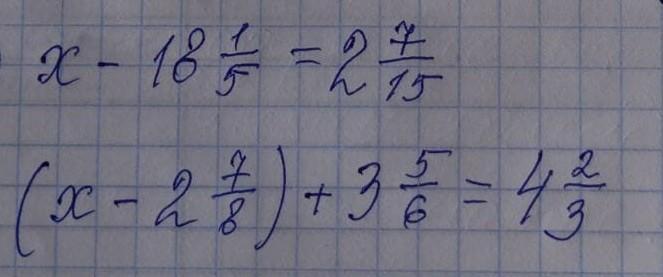 x - 18 1/5 = 2 7/15
(x - 2 7/8) + 3 5/6 = 4 2/3